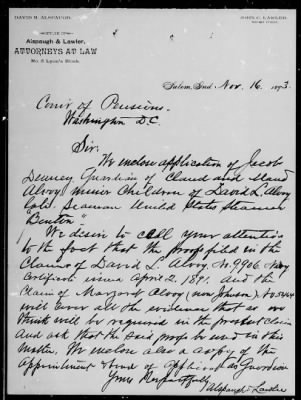 DAVID M. ALSPAUGH.
JOHN C. LAWLER.
OFFICE OF
Alspaugh & Lawler,
ATTORNEYS AT LAW
No. 5 Lyon's Block.
Salem, Ind. Nov. 16, 1893.
Com'r of Pensions.
Washington D.C.
Sir:
We enclose application of Jacob
Denney Guardian of Claud and
Alvey minor Children of David L. Alvey
late Seaman United States Steamer
"Benton".
We desire to call your attention
to the fact that the proof filed in the
Claim of David L. Alvey, No 9906 Navy
Certificate issued April 2, 1891. and the
Claim of Margaret Alvey (now Johnson),
will cover all the evidence that as we
think will be required in the present claim
and ask that the said proof be used in this
matter. We enclose also a copy of the
appointment & bond of applicant as Guardian
Yours Respectfully
Alspaugh & Lawler